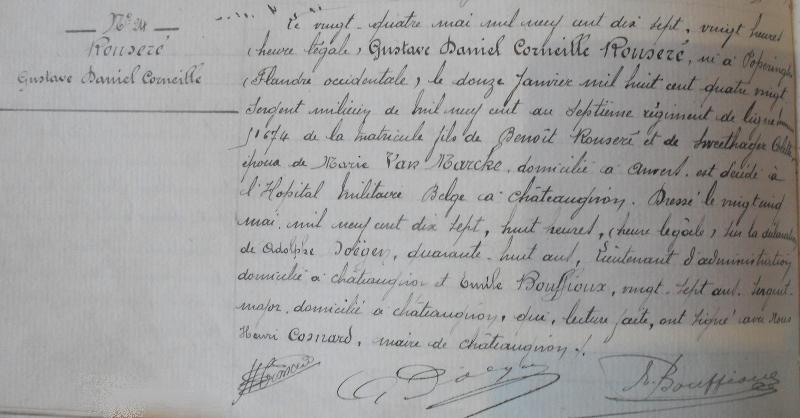 N° 24
Rouseré
Gustave Daniel Corneille
Le vingt-quatre mai mil neuf cent dix sept, vingt heures
(heure légale) Gustave Daniel Corneille Rouseré, né à Poperinghe
(Flandre occidentale), le douze Janvier mil huit cent quatre vingt
Sergent milicien de mil neuf cent au Septième régiment de ligne
51674 de la matricule fils de Benoît Rouseré et de Sweethaeger
époux de Marie Van Marcke, domicilié à Anvers, est décédé à
l'Hopital Militaire Belge à Châteaugiron. Dressé le vingt cinq
mai mil neuf cent dix sept, huit heures, (heure legâle) sur la déclaration
de Adolphe quarante-huit ans, Lieutenant d'administration
domicilié à châteaugiron et Emile Bouffioux, vingt-sept ans. Sergent-
major, domicilié à châteaugiron, qui, lecture faite, ont signé avec Nous
Henri Cosnard, maire de châteaugiron.
E. Bouffioux